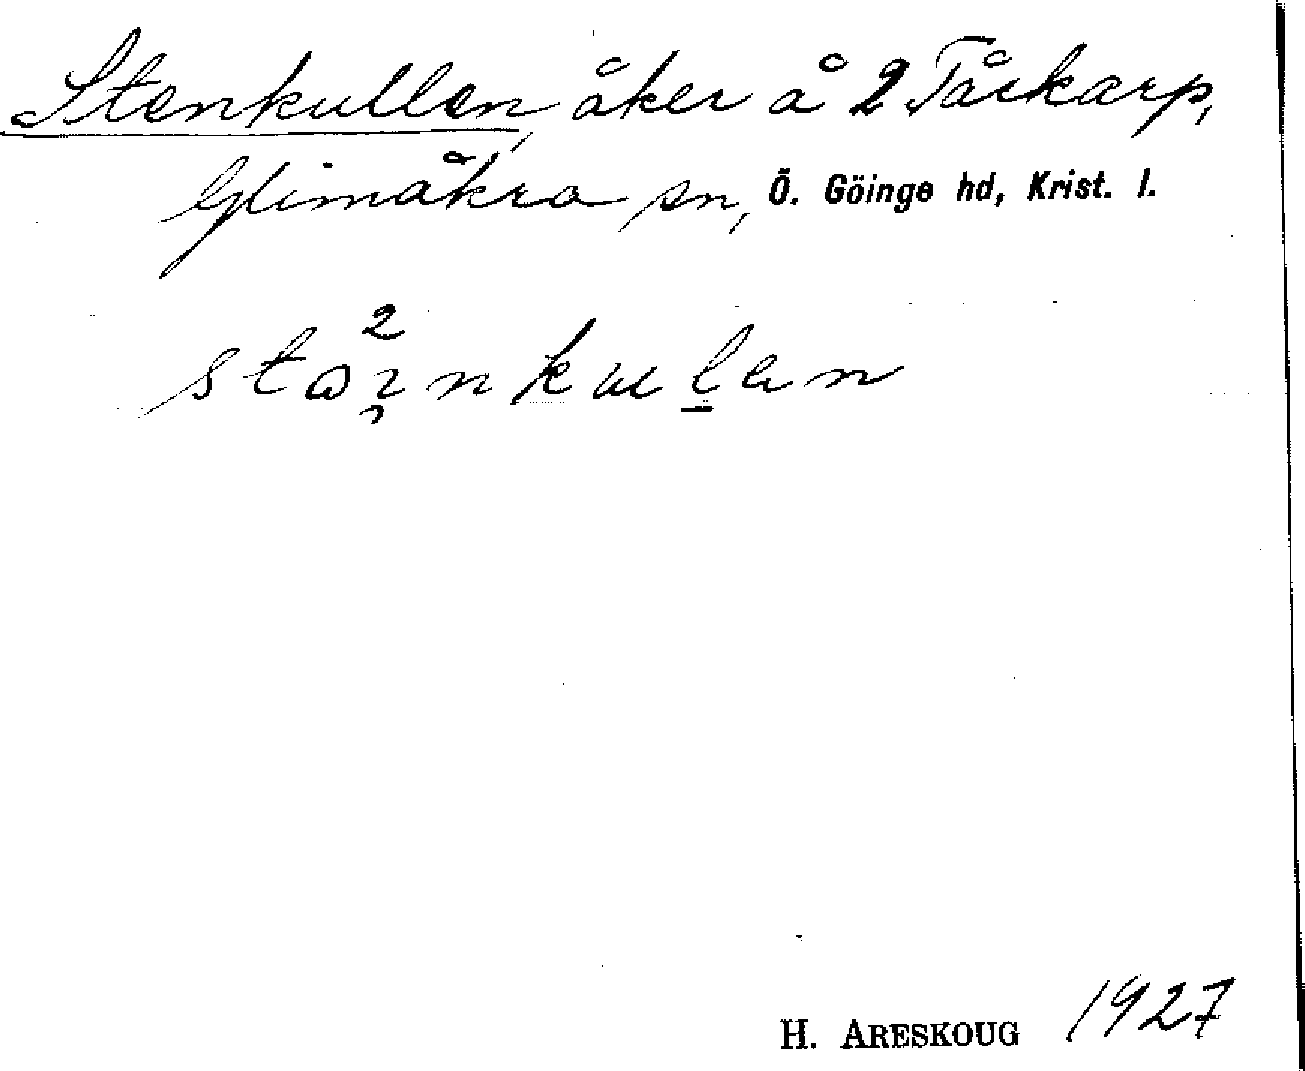 Stenkullen, åker å 2 Tåskarp,
Glimåkra sn, Ö. Göinge hd, Krist. l.
H. ARESKOUG 1927